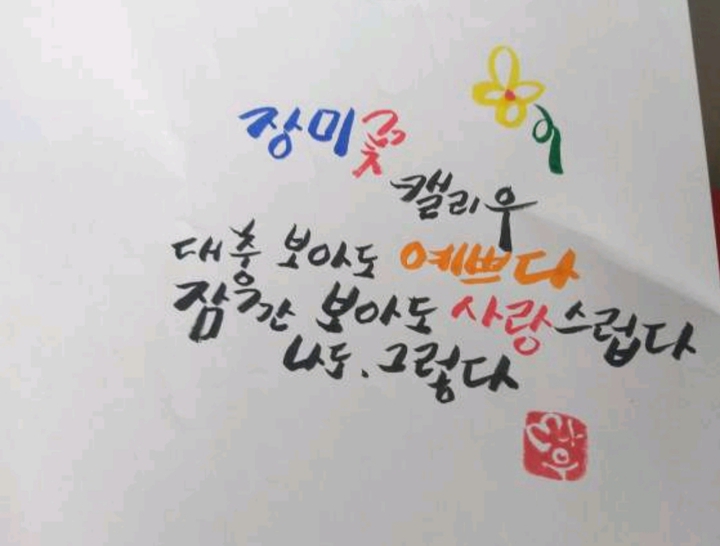 장미꽃
캘리우
대충 보아도 예쁘다
잠깐 보아도 사랑스럽다
나도. 그렇다